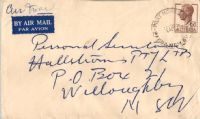 Air Mail
BY AIR MAIL
PAR AVION
AUSTRALIA
Personal
Hallstroms Pty Ltd
P.O Box
Willoughby
N SW